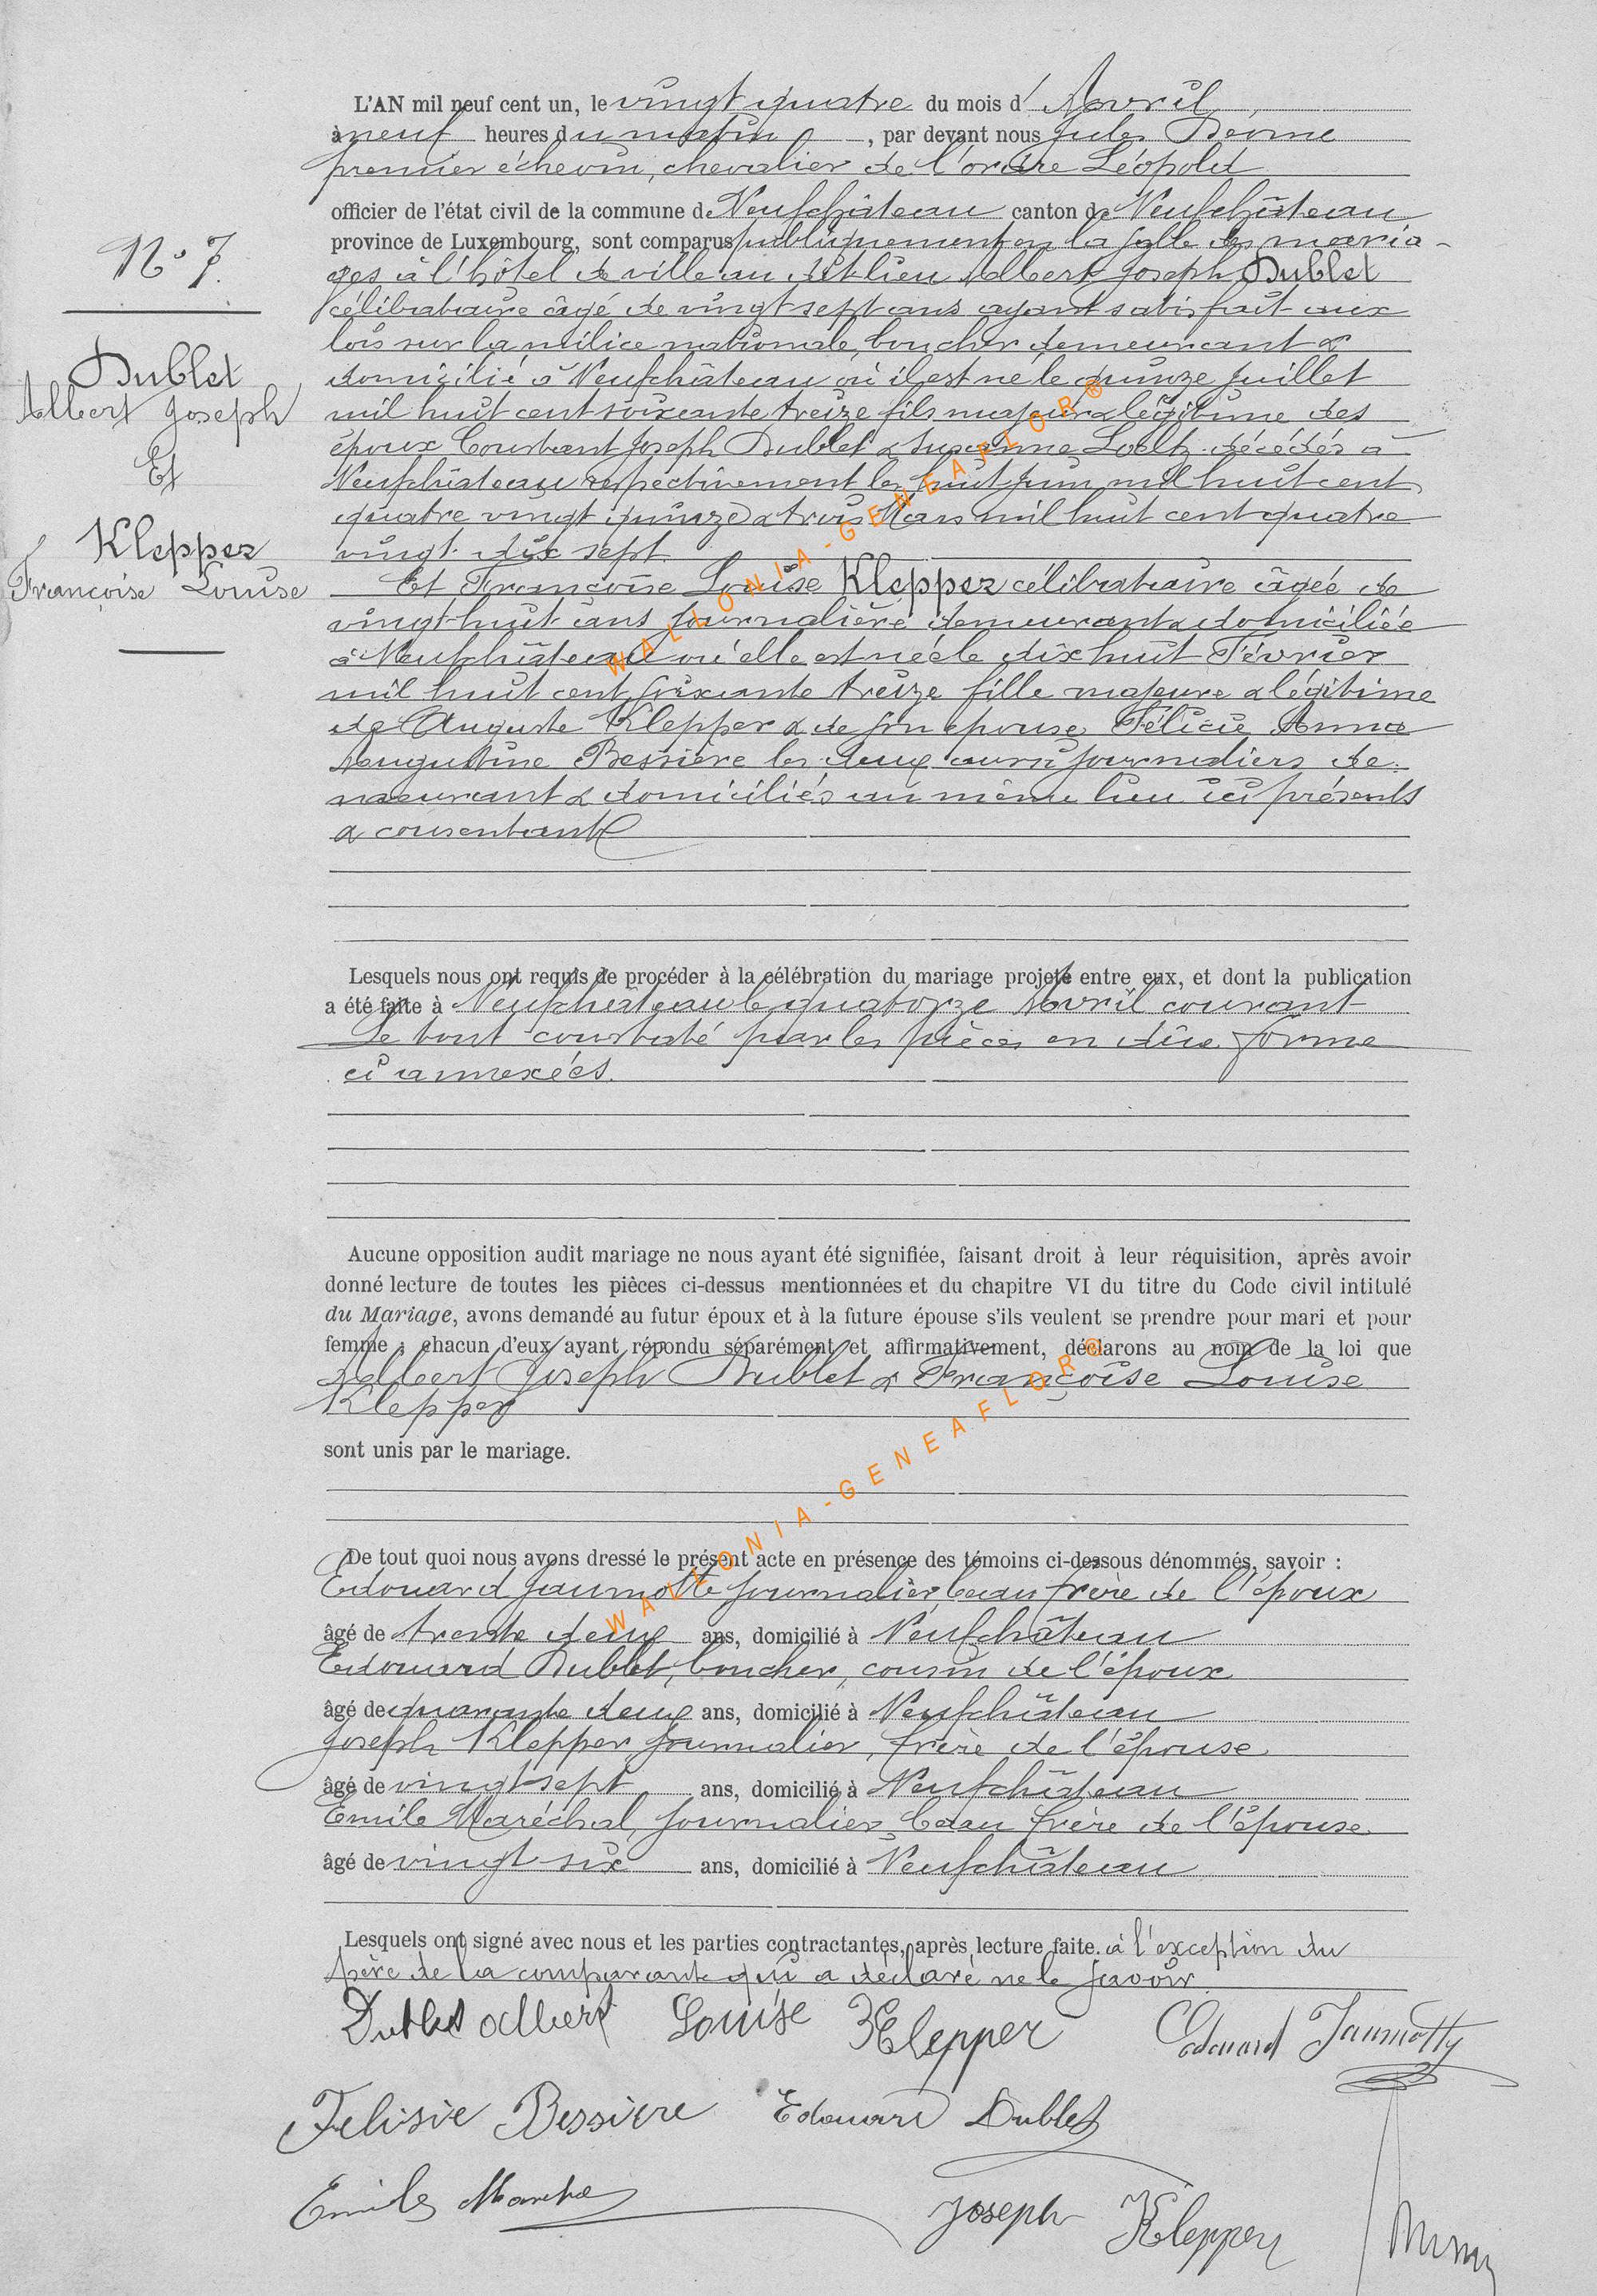 N° 7.
Dublet
Albert Joseph
Et
Klepper
Françoise Louise
L'AN mil neuf cent un, le vingt quatre du mois d' Avril
à neuf heures du matin, par devant nous Jules
premier échevin, chevalier de l'ordre Léopold
officier de l'état civil de la commune de Neufchâteau canton de Neufchâteau
province de Luxembourg, sont comparus publiquement en la salle des maria-
ges à l'hôtel de ville au dit lieu Albert Joseph Dublet
célibataire âgé de vingt sept ans ayant satisfait aux
lois sur la milice nationale, boucher demeurant &
domicilié à Neufchâteau où il est né le quinze Juillet
mil huit cent soixante treize fils majeur & légitime des
époux Constant Joseph Dublet & Susanne décédés à
Neufchâteau respectivement les huit Juin mil huit cent
quatre vingt quinze & trois Mars mil huit cent quatre
vingt dix sept
Et Françoise Louise Klepper célibataire âgée de
vingt huit ans journalière demeurant & domiciliée
à Neufchâteau où elle est née le dix huit Février
mil huit cent soixante treize fille majeure & légitime
de Auguste Klepper & de son épouse Félicie Anna
Augustine Bessière les deux aussi journaliers de-
meurant & domiciliés au même lieu ici présents
& consentants
Lesquels nous ont requis de procéder à la célébration du mariage projeté entre eux, et dont la publication
a été faite à Neufchâteau le quatorze Avril courant
Le tout constaté par les pièces en due forme
ci annexées.
Aucune opposition audit mariage ne nous ayant été signifiée, faisant droit à leur réquisition, après avoir
donné lecture de toutes les pièces ci-dessus mentionnées et du chapitre VI du titre du Code civil intitulé
du Mariage, avons demandé au futur époux et à la future épouse s'ils veulent se prendre pour mari et pour
femme ; chacun d'eux ayant répondu séparément et affirmativement, déclarons au nom de la loi que
Albert Joseph Dublet & Françoise Louise
Klepper
sont unis par le mariage.
De tout quoi nous avons dressé le présent acte en présence des témoins ci-dessous dénommés, savoir :
Edouard Jaumotte journalier, beau frère de l'époux
âgé de trente deux ans, domicilié à Neufchâteau
Edouard Dublet, boucher, cousin de l'époux
âgé de quarante deux ans, domicilié à Neufchâteau
Joseph Klepper journalier, frère de l'épouse
âgé de vingt sept ans, domicilié à Neufchâteau
Emile Maréchal, journalier, beau frère de l'épouse
âgé de vingt six ans, domicilié à Neufchâteau
Lesquels ont signé avec nous et les parties contractantes, après lecture faite. à l'exception du
père de la comparante qui a déclaré ne le savoir
Dublet albert Louise Klepper Edouard Jaumotte
Felisie Bessiere Edouard Dublet
Emile
Joseph Klepper
WALLONIA-GENEAFLOR®
WALLONIA-GENEAFLOR®